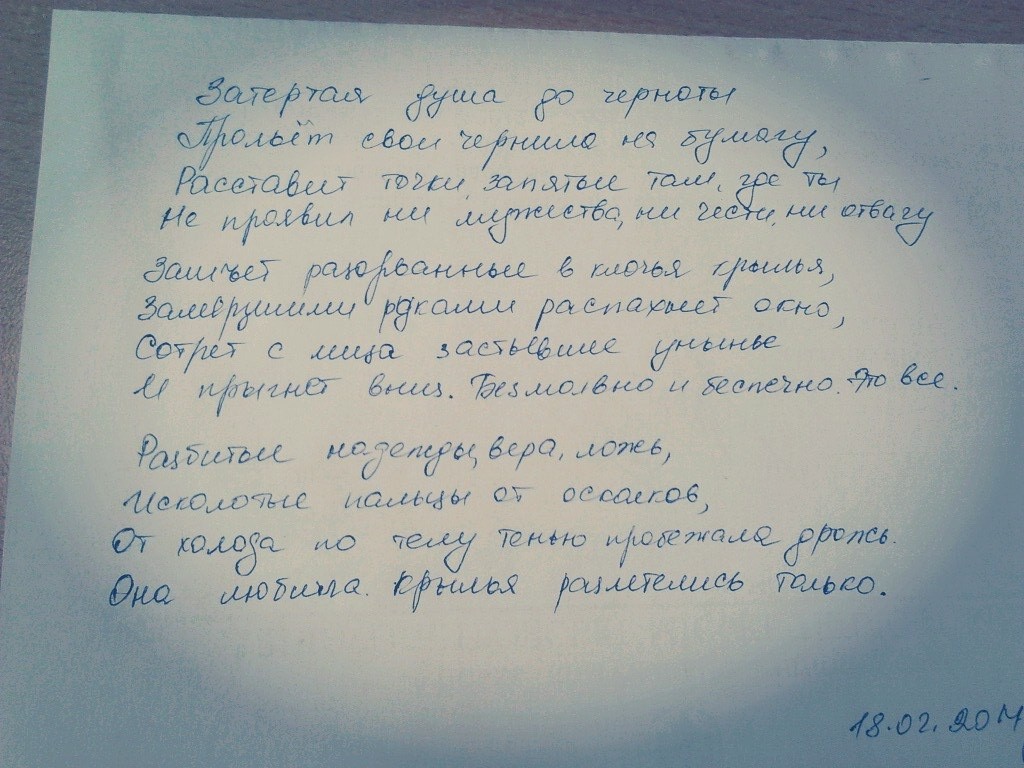 Затертая душа до черноты
Прольёт свои чернила на бумагу,
Расставит точки, запятые там, где ты
Не проявил ни мужества, ни чести, ни отвагу
Зашьет разорванные в клочья крылья,
Замёрзшими руками распахнет окно,
Сотрет с лица застывшие унынье
И прыгнет вниз. Безмолвно и беспечно. Это все.
Разбитые надежды, вера, ложь,
Исколотые пальцы от осколков,
От холода по телу тенью пробежала дрожь.
Она любила. Крылья разлетелись только.